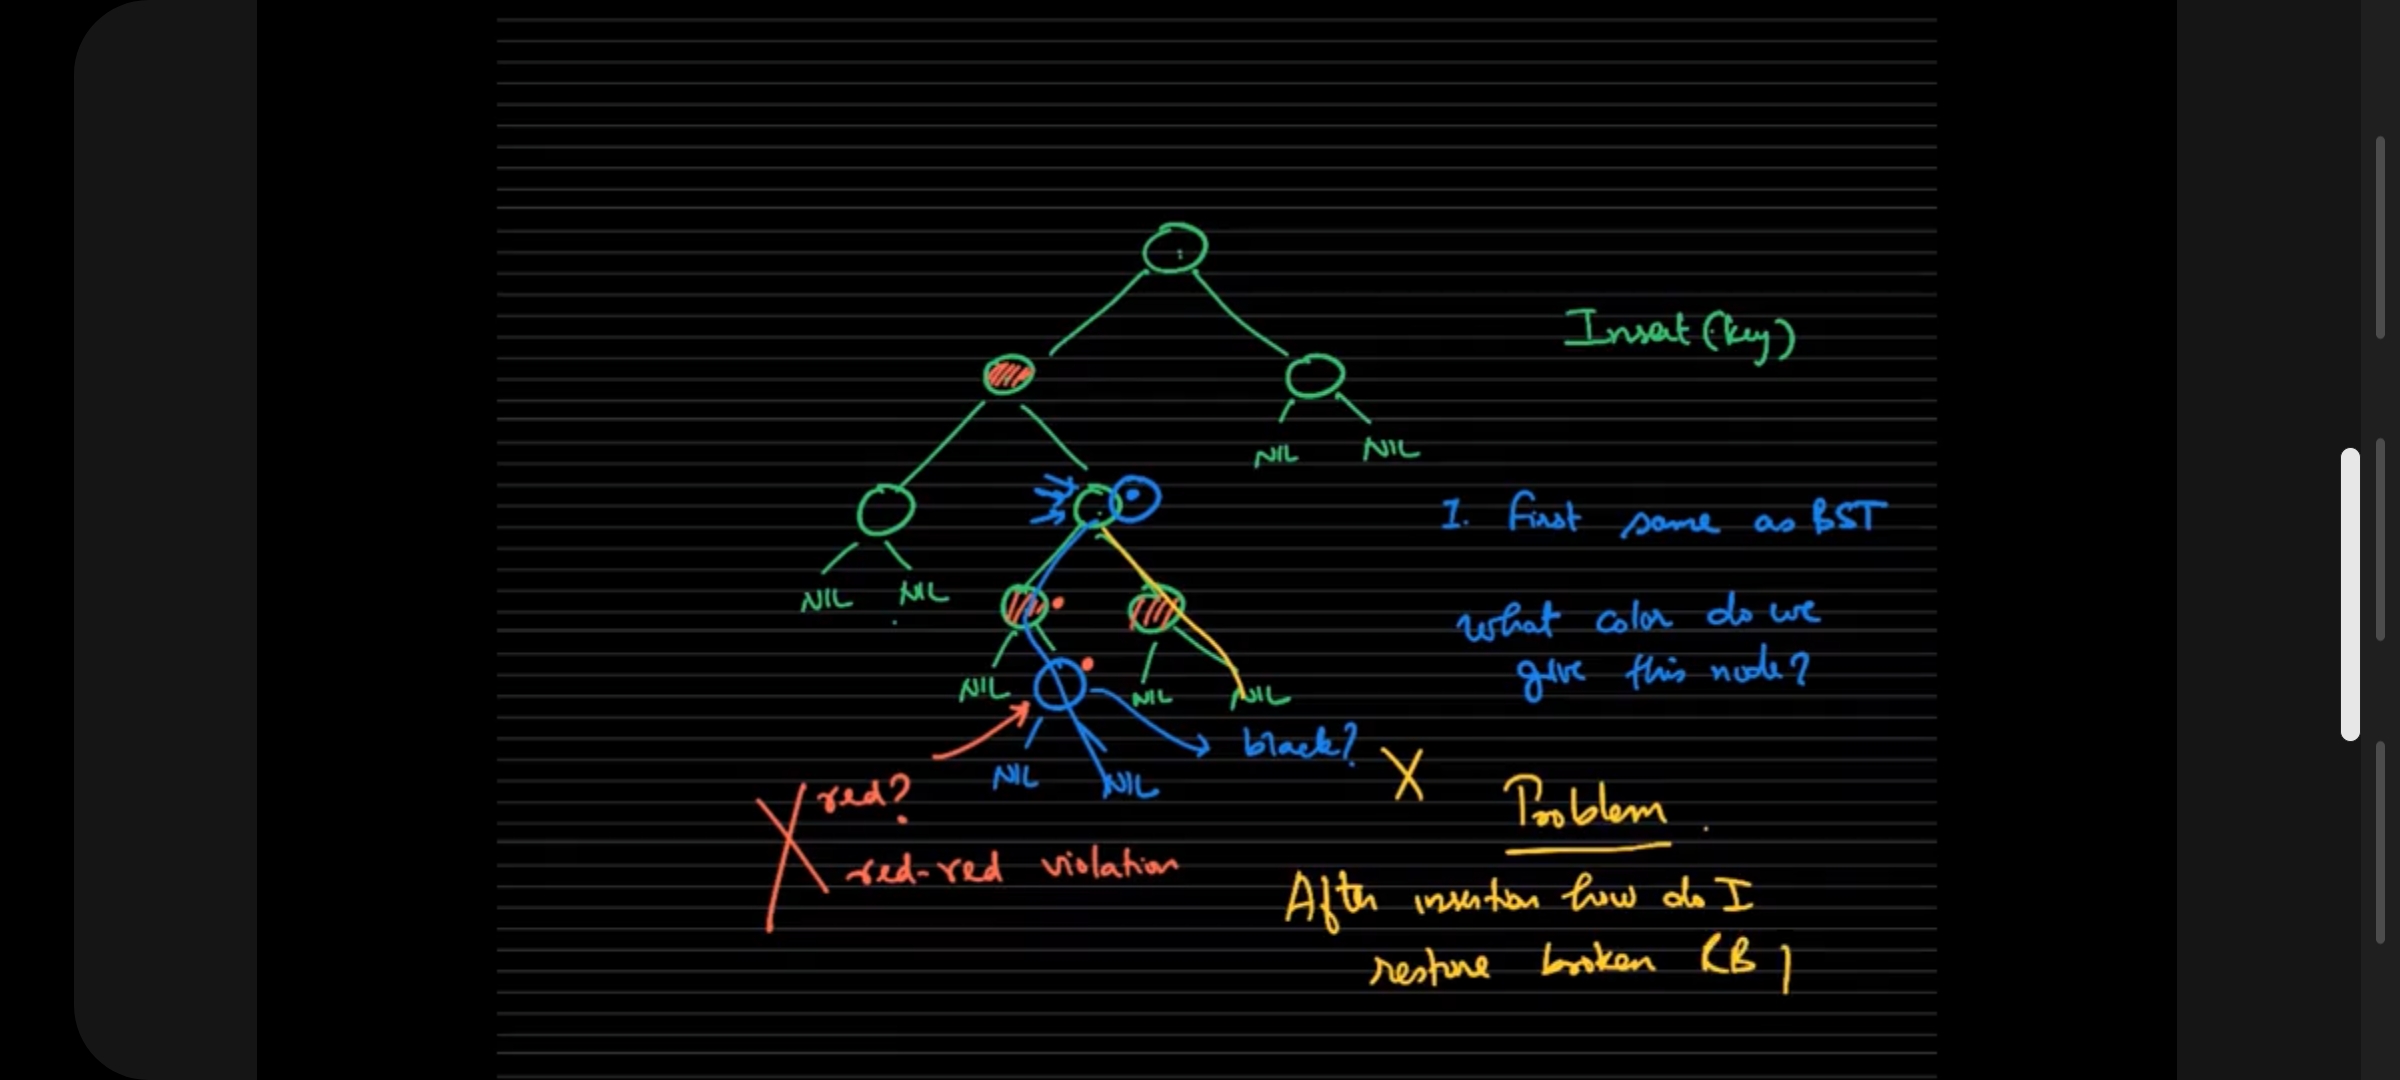 Insert (key)
NIL NIL
1. first same as BST
NIL NIL
what color do we
give this node?
NIL NIL NIL
black?
NIL NIL
red?
Problem
red-red violation
After insertion how do I
restore broken RB